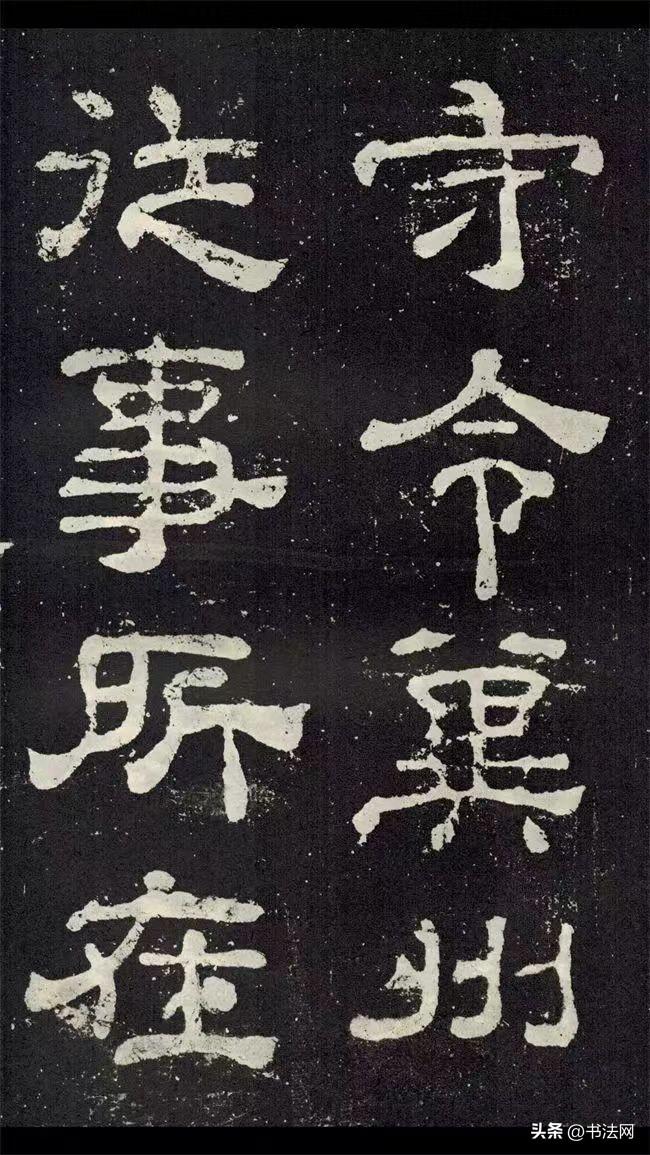 守令冀州
従事所在
头条 @书法网